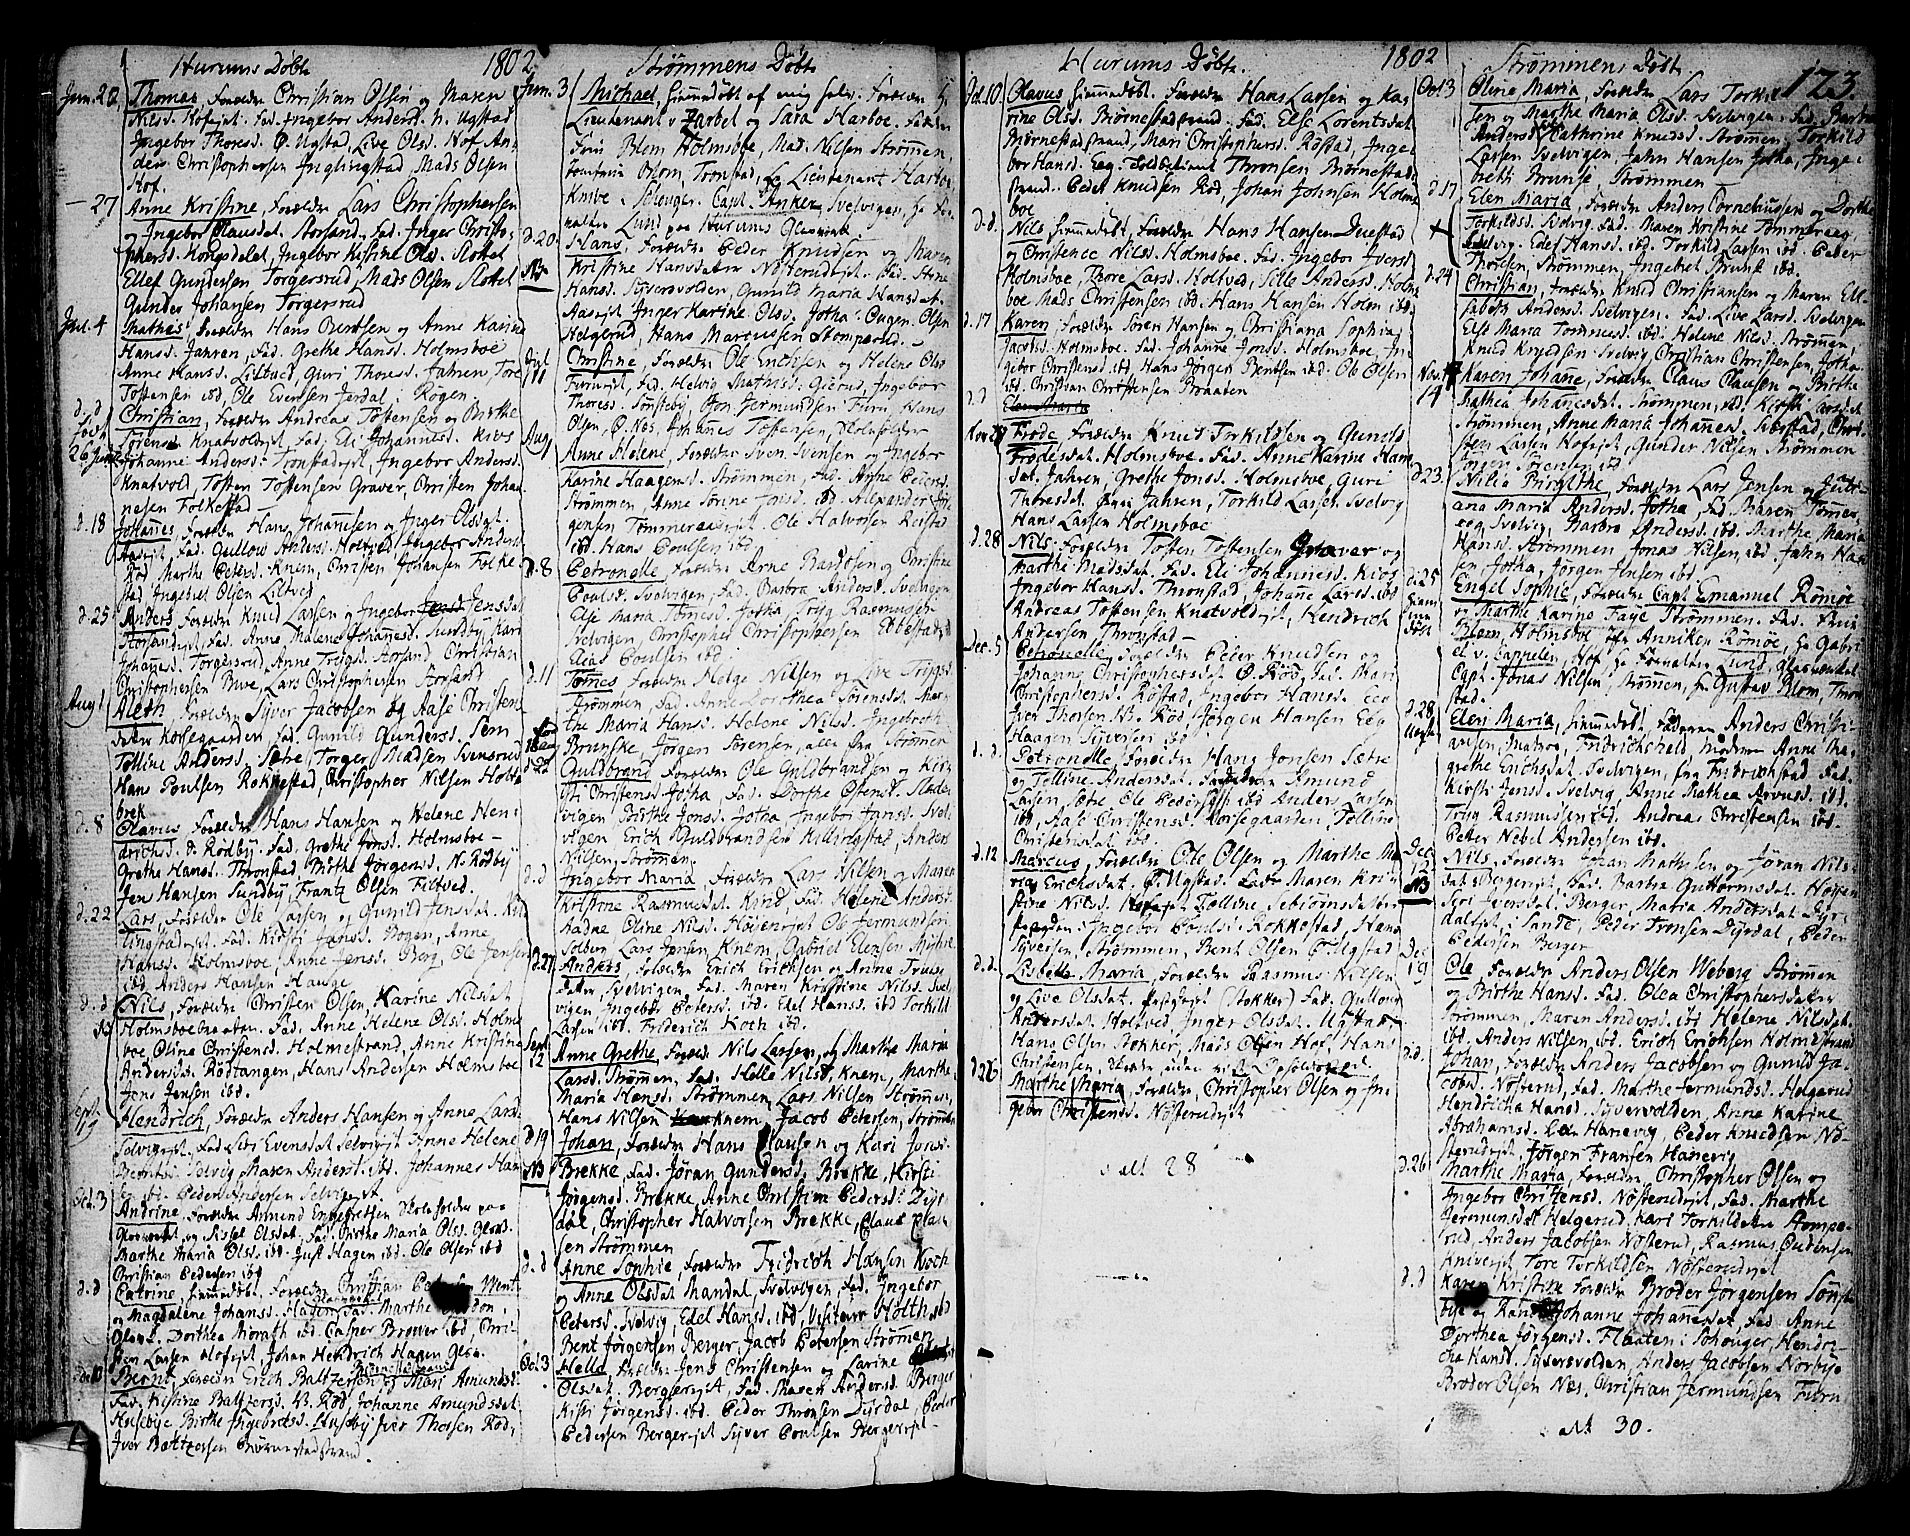 Hurums Døbte 1802
Jun. 20 Thomas, Forældre Christian Olsen og Maren
Nilsd. Hofejet. Fad. Ingebor Andersd. N. Ugstad
Ingebor Thoresd. Ø. Ugstad, Live Olsd. Hof An-
ders Christophersen Inglingstad, Mads Olsen
Hof.
- 27 Anne Kristine, Forældre Lars Christophersen
og Ingebor Olausdat. Storsand. Fad. Inger Christo-
phersd. Kongsdalet, Ingebor Kistine Olsd. Slottet
Ellef Gundersen, Torgersrud, Mads Olsen Slottet
Gunder Johansen Torgersrud
Jul. 4 Mathes, Forældre Hans Ourdsen og Anne Karine
Hansd. Jahren, Fad. Grethe Hansd. Holmsboe
Anne Hansd. Liltved, Guri Thoresd. Jahren, Tore
Tostensen ibd, Ole Evensen Jerdal. Røgen.
d. d Christian, Forældre Andreas Tostensen og Birthe
Født 26 Juni Sørensd. Knatvoldejet Fad: Eli Johannesd. Kios
Johanne Andersd: Tronstadejet, Ingebor Andersd.
Knatvold Tosten Tostensen Graver, Christen Johan-
nesen Folkestad
d. 18 Johannes, Forældre Hans Johannesen og Inger Olsdat.
Aasejet, Fad. Gullow Andersd. Holtved, Ingebor Andersd.
Rød Marthe Petersd. Knem, Christen Johansen Folke-
stad Ingebret Olsen Liltved
d. 25 Anders Forældre Knud Larsen og Ingebor Jensdat
Storsandejet, Fad. Anne Malene Johanesd. Sundby, Kari
Johannesd. Torgersrud, Anne Trogsd. Storsand, Christian
Christophersen Bue, Lars Christophersen Storsand
Aug 1 Aleth, Forældre Syver Jacobsen og Aase Christens-
datter Korsegaarden Fad. Gunild Gundersd. Sem
Tolline Andersd. Sætre, Torger Madsen Svensrud
Hans Poulsen Rokkestad, Christopher Nilsen Holte-
brek
d. 8 Olavus Forældre Hans Hansen og Helene Hen-
drichsd. S. Rødby, Fad. Grethe Jonsd. Holmsboe-
Grethe Hansd. Thronstad, Birthe Jørgensd. N. Rødby
Jen Hansen Sundby, Frantz Olsen Filtved.
d. 22 Lars, Forældre Ole Larsen og Gunild Jensdat. Kil-
lingstadejet. Fad. Kirsti Jonsd. Bogen, Anne
Hansd. Holmsboe, Anne Jensd. Berg, Ole Jensen
ibd Anders Hansen Hauge
d. d Nils, Forældre Christen Olsen, Karine Nilsdat
Holmsboebraaten. Fad. Anne Helene Olsd. Holms-
boe, Oline Christensd. Holmestrand, Anne Kristine
Andersd. Rødtangen, Hans Andersen Holmsboe
Jens Jensen ibd.
Sept. 19 Hendrich, Forældre Anders Hansen og Anne Larsd.
Selvigejet. Fad. Siri Evensdat Selvigejet Anne Helene
Berntsd. Selvig, Maren Andersd. ibd. Johannes Han-
sen ibd. Peder Andersen Selvigejet.
Oct. 3 Andrine, Forældre Amund Engebretsen Skoleholder paa
Glasværket og Sissel Olsdat, Fad. Birthe Maria Olsd. Glasv.
Marthe Maria Olsd. ibd. Just Hagen ibd. Ole Olsen ibd
Christian Pedersen ibd
d. d Catrine, hiemmedøbt. Forældre Christian Ment-
og Magdalene Johansd. Hagen, Fad. Marthe
Glasv. Dorthea Morath ibd. Casper Brower ibd, Chri-
sten Larsen Hofejet, Johan Hendrich Hagen Glasv.
Bernt, Forældre Erich Baltzersen og Mari Amundsd.
Fad. Kistine Baltzersd. N. Rød, Johanne Amundsdat
Husebye, Birthe Ingebretsd. Husebÿ Iver Thorsen Rød,
Iver Baltzersen Biørnestadstrand.

Strømmens Døbte
Jun. 3 Michael, hiemmedøbt af mig selv. Forældre S.
Lieutenant v. Zarbel og Sara Harboe. Fad.
Frue Blom Holmsboe, Mad. Nilsen Strømmen,
Jomfrue Blom, Tronstad, Hr. Lieutenant Harboe,
Knive - Schouger. Capt. Anker, Svelvigen, Hr. For-
valter Lund paa Hurums Glasværk.
d. 20 Hans, Forældre Peder Knudsen og Maren
NB Kristine Hansdatter Nøsterudejet. Fad. Stine
Hansd. Syversvolden, Gunild Maria Hansdat.
Aasejet Inger Karine Olsd. Jotha. Eugen. Olsen
Helgerud, Hans Marcussen Stomperud.
Jul 11 Christine, Forældre Ole Erichsen og Helene Olsd
Furuejet, Fad. Helvig Mathisd. Gierud, Ingebor
Thoresd. Sønsteby, Jon Jermundsen Furu, Hans
Olsen, Ø. Næs, Johannes Tostensen, Skoleholder
Aug 1 Anne Helene, Forældre Sven Svensen og Ingebor
Karine Haagensd. Strømmen, Fad. Anne Pedersd.
Strømmen, Anne Sørine Jonsd. ibd Alexander Jør-
gensen Tømmeraasejet. Ole Halvorsen Revstad
ibd. Hans Poulsen ibd.
d. 8 Petronelle, Forældre Arne Baardsen og Christine
Poulsd. Svelvigen, Fad. Barbra Andersd. Svelvigen
Else Maria Tomesd. Jotha Tryg Rasmussen
Svelvigen, Christopher Christophersen Ebbestadejet
Elias Poulsen ibd.
d. 11 Tomes Forældre Helge Nilsen og Live Trygsd.
Strømmen, Fad. Anne Lorothea Sørensdat Mar-
the Maria Hansd. Helene Nilsd. Ingebreth
Brunske, Jørgen Sørensen, alle fra Strømmen
d. 22 Guldbrand Forældre Ole Guldbrandsen og Kir-
sti Christensd. Jotha, Fad. Dorthe Ostensd. Svel-
vigen Birthe Jonsd. Jotha Ingebor Jansd. Svel-
vigen Erich Guldbrandsen Killingstad, Anders
Nilsen, Strømmen.
d. d Ingebor Maria, Forældre Lars Nilsen og Maren
Kristine Rasmusdat. Kind, Fad. Helene Andersd.
Aadne, Oline Nilsd. Høienejet Ole Jermundsen
Solberg Lars Jensen Knem, Gabriel Elensen
d. 27 Anders, Forældre Erich Erichsen og Anne Truls-
datter, Svelvigen, Fad. Maren Kristine Nilsd. Svel-
vigen, Ingebor Petersd. ibd. Edel Hansd. ibd Torkild
Larsen ibd. Friderich Koch ibd.
Sept. 12 Anne Grethe, Foræld: Nils Larsen og Marthe Maria
Larsd. Strømmen, Fad. Helle Nilsd, Knem, Marthe
Maria Hansd. Strømmen Lars Nilsen Strømmen,
Hans Nilsen Knem, Jacob Petersen, Strømmen
d. 19 Johan, Forældre Hans Clausen og Kari Jonsd.
NB Brekke, Fad. Jøran Gundersd. Brekke, Kirsti
Jørgensd. Brekke, Anne Christina Pedersd. Dyr-
dal, Christopher Halvorsen Brekke, Claus Clau-
sen Strømmen
d. d Anne Sophie, Forældre Fridrich Hansen Koch
og Anne Olsdat Mandal, Svelvigen, Fad. Ingebor
Petersd. Svelvig, Edel Hansd. ibd, Victoria Holth ibd
Bent Jørgensen Berger, Jacob Petersen Strømmen
Oct. 3 Helle, Forældre Jens Christensen og Karine
Olsdat. Bergerejet, Fad. Maren Andersd. Berger
Kisti Jørgensd. ibd. Peder Thronsen Dyrdal, Peder
Pedersen Bergerejet Syver Poulsen Bergerejet.

Hurums Døbte. 1802
Oct. 10 Olavus, hiemmedøbt. Forældre Hans Larsen og Ka-
rine Olsd. Biørnestadstrand. Fad. Else Lorentsdat
Biørnestadstrand, Mari Christophersd. Røstad, Inge-
bor Hansd. Eeg, Toldbetient Thronsen, Biørnestad-
strand. Peder Knudsen Rød, Johan Johnsen Holms-
boe
d. d. Nils hiemmedøbt, Forældre Hans Hansen Juestad
og Christence Nilsd. Holmsboe. Fad. Ingebor Iversd.
Holmsboe, Thore Larsd. Holtved, Sille Andersd. Holms-
boe Mads Christensen ibd. Hans Hansen Holm ibd.
d. 17 Karen, Forældre Søren Hansen og Christiana Sophia
Jacobsd. Holmsboe. Fad. Johanne Jonsd. Holmsboe, In-
gebor Christensd. ibd, Hans Jørgen Bentsen ibd. Ole Olsen
ibd. Christian Christensen Braaten
d. d
Nov. 21 Frode, Forældre Knud Torkildsen og Gunild
Frodesdat. Holmsboe. Fad. Anne Karine Hans-
dat. Jahren, Grethe Jonsd. Holmsboe, Guri
Thoresdat. Jahren, Torkild Larsen Svelvig
Hans Larsen Holmsboe
d. 28 Nils. Forældre Tosten Tostensen Graver og
Marthe Madsdat. Fad. Eli Johannesd. Kios
Ingebor Hansd. Thronstad, Johane Larsd. ibd
Andreas Tostensen Knatvoldejet, Hendrich
Andersen, Thronstad
Dec. 5 Petronelle, Forældre Peder Knudsen og
Johanne Christophersdat Ø. Rød, Fad. Mari
Christophersd. Røstad, Ingebor Hansd. Eeg
Iver Thorsen N. Rød, Jørgen Hansen Eeg
Haagen Syversen ibd
d. d Petronelle, Forældre Hans Jonsen Sætre
og Tolline Andersdat. Amund
Larsen, Sætre, Ole Pedersen ibd Anders Larsen
ibd, Aase Christensd. Korsegaarden, Tolline
Christensdat ibd.
d. 12 Marcus, Forældre Ole Olsen og Marthe Ma-
ria Erichsdat, Ø. Ugstad. Fadr. Maren Kri-
stine Nilsd. Tolline Sebiørnsdatter
Ingebor Poulsd. Rokkestad, Hans
Syversen, Strømmen, Bent Olsen Ø. Ugstad
d. d. Lisbeth Maria, Forældre Rasmus Nilsen
og Live Olsdat. (Stokker) Fad. Gullow
Andersdat. Holtved, Inger Olsdat. Ugstad,
Hans Olsen Stokker, Mads Olsen Hof, Hans
Christensen,
d. 26 Marthe Maria, Forældre, Christopher Olsen og In-
gebor Christensd. Nøsterudejet
alt 28

1802 Strømmens Døbte 123.
Oct 3 Oline Maria, Forældre Lars Torkild-
sen og Marthe Maria Olsd. Svelvigen. Fad. Barbra
Andersd. Kathrine Knudsd. Strømmen, Torkild
Larsen Svelvigen, Jahn Hansen Jotha, Inge-
breth Brunse, Strømmen
d. 17 Elen Maria, Forældre Anders Cornelnissen og Dorthe
Torkildsd. Svelvig. Fad. Maren Kristine Tømmeraas,
Svelvig. Edel Hansd. ibd. Torkild Larsen ibd. Peder
Thorsen, Strømmen, Ingebret Brunse ibd.
d. 24 Christian, Forældre Knud Christiansen og Maren Eli-
sabeth Andersd. Svelvigen. Fad. Live Larsd. Svelvigen
Else Maria Tommesd. ibd. Helene Nilsd. Strømmen
Knud Knudsen Svelvig Christian Christensen, Jotha.
Nov. 14 Karen Johanne, Forældre Claus Clausen og Birthe
Mathea Johanesdat. Strømmen, ibd. Kirsti Larsdat
Strømmen, Anne Maria Johanesd. Sæbstad, Chri-
sten Larsen Hofejet, Gunder Nilsen Strømmen
Jørgen Sørensen ibd
d. 23. Nilia Birgithe, Forældre Lars Jensen og Juli-
ana Maria Andersd. Jotha, Fad. Maren Tømmer-
eeg Svelvig, Barbra Andersd. ibd. Marthe Maria
Hansd. Strømmen Jonas Nilsen, ibd. Jahn Han-
sen, Jotha, Jørgen Jensen ibd.
d. 25 hiemmedøbt Engel Sophie, Forældre Capt. Emanuel Rømøe
og Marthe Karine Faye Strømmen. Fad. Frue
Blom, Holmsboe Jfr. Anniken Rømøe, Hr. Gabri-
el v. Cappelen, Hof Hr. Forvalter Lund, Glasværket
Capt. Jonas Nilsen, Strømmen, Hr. Gustav Blom, Thron-
stad.
d. 28. Elen Maria, hiemmedøbt, Faderen Anders Christi-
ansen, Matros, Fridrichshald, Moderen Anne Ma-
grethe Erichsdat. Svelvigen, fra Fridrichstad. Fad.
Kirsti Jensd. Svelvig Anne Mathea Arnesd. ibd.
Tryg Rasmussen ibd. Andreas Christensen ibd.
Peter Nebel Andersen ibd.
Dec. 12 NB Nils, Forældre Johan Mathesen og Jøran Nils-
dat. Bergerejet, Fad. Barbra Guttormsdat. Høyen
Siri Iversdat. Berger, Maria Andersdat Dyr-
dalejet, i Sande, Peder Tronsen Dyrdal, Peder
Pedersen Berger
Dec. 19 Ole, Forældre Anders Olsen Weberg Strømmen
og Birthe Hansd. Fad. Olea Christophersdatter
Strømmen, Maren Andersd. ibd Helene Nilsdat.
ibd, Anders Nilsen, ibd. Erich Erichsen Holmestrand
d. d. Johan, Forældre Anders Jacobsen og Gunild Ja-
cobsd. Nøsterud, Fad. Marthe Jermundsd. Helgerud
Hendricha Hansd. Syversvolden, Anne Karine
Abrahamsd. Hanevig, Peder Knudsen Nø-
sterudejet, Jørgen Fransen Hanevig
d. 26 Marthe Maria, Forældre Christopher Olsen og
Ingebor Christensd. Nøsterudejet, Fad. Marthe
Jermunsdat Helgerud, Kari Torkildsdatter Stompe-
rud, Anders Jacobsen Nøsterud, Rasmus Oudensen
Kniveejet Tore Torkildsen Nøsterudejet
d. d Karen Kristine Forældre Broder Jørgensen Sønste-
bye og Johanne Johannesdat, Fad. Anne
Dorthea Jørgensd. Flaaten i Schouger, Hendri-
cha Hansd. Syversvolden, Anders Jacobsen Norbye
Broder Olsen Næs, Christian Jermundsen Furu
alt 30.